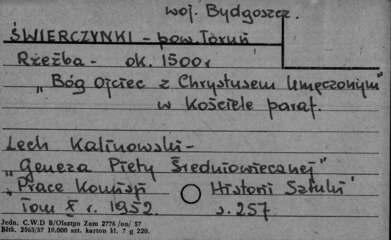 woj. Bydgoszcz.
ŚWIERCZYNKI - pow. Toruń
Rzeźba - ok. 1500 r
„Bóg Ojciec z Chrystusem Umęczonym"
w Kościele paraf.
Lech Kalinowski -
„Geneza Piety Średniowiecznej"
„Prace Komisji Historii Sztuki"
Tom X r. 1952. s. 257
Jedn. C.W.D B/Olsztyn Zam 2776 /on/ 57
Bltk. 2563/57 10.000 szt. karton kl. 7 g 220.